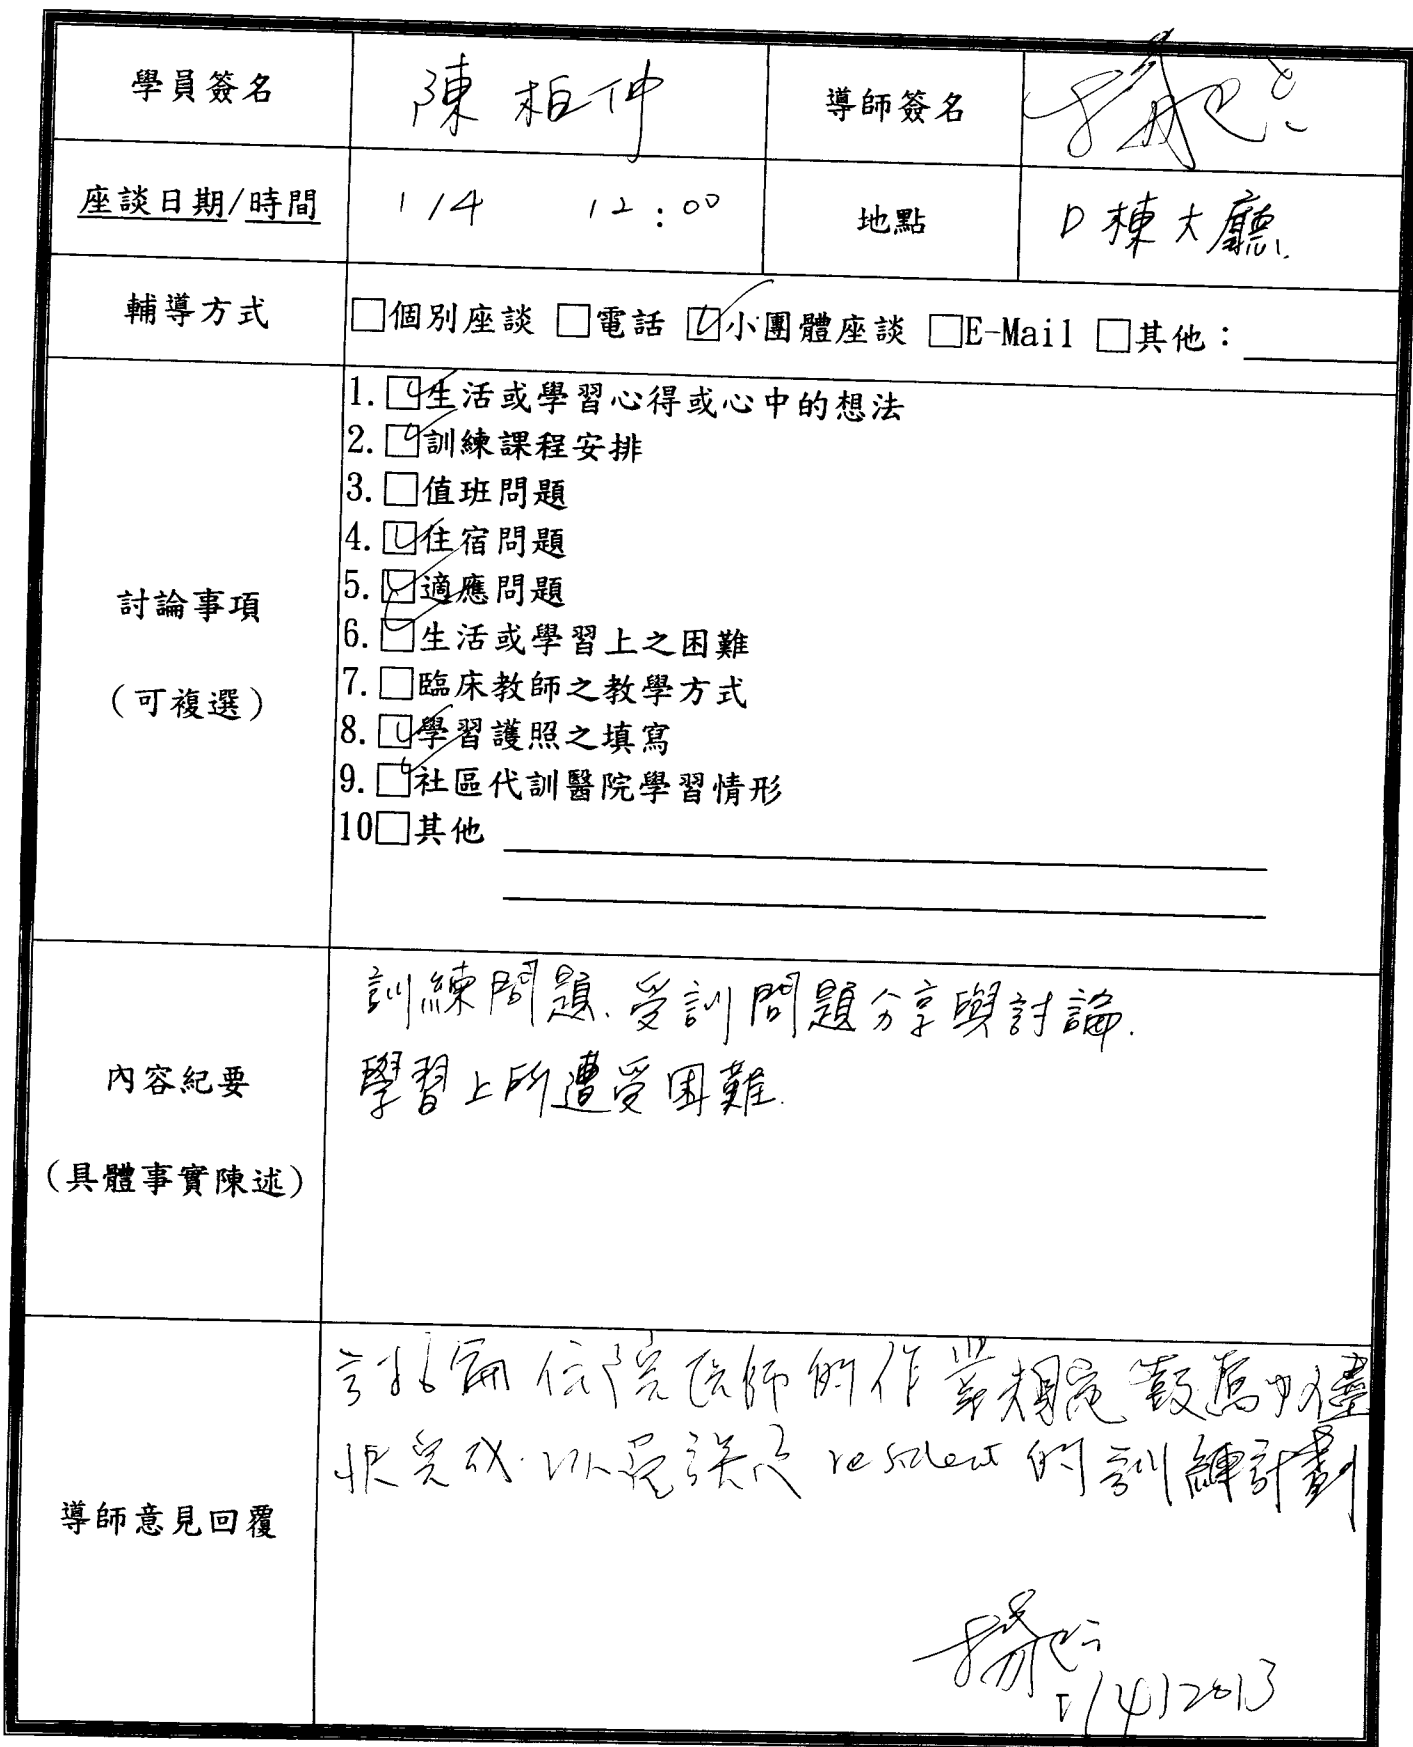 學員簽名 陳柏仲 導師簽名
座談日期/時間 1/4 12:00 地點 D棟大廳.
輔導方式 □個別座談 □電話 ☑小團體座談 □E-Mail □其他：
討論事項
(可複選)
1.☑生活或學習心得或心中的想法
2.☑訓練課程安排
3.□值班問題
4.☑住宿問題
5.☑適應問題
6.☑生活或學習上之困難
7.□臨床教師之教學方式
8.☑學習護照之填寫
9.☑社區代訓醫院學習情形
10□其他
內容紀要
(具體事實陳述)
訓練問題、受訓問題分享與討論.
學習上所遭受困難.
導師意見回覆
討論 住院医師的作業規定 鼓勵 儘
快完成.以免誤了 resident 的訓練計劃
1/4/2013